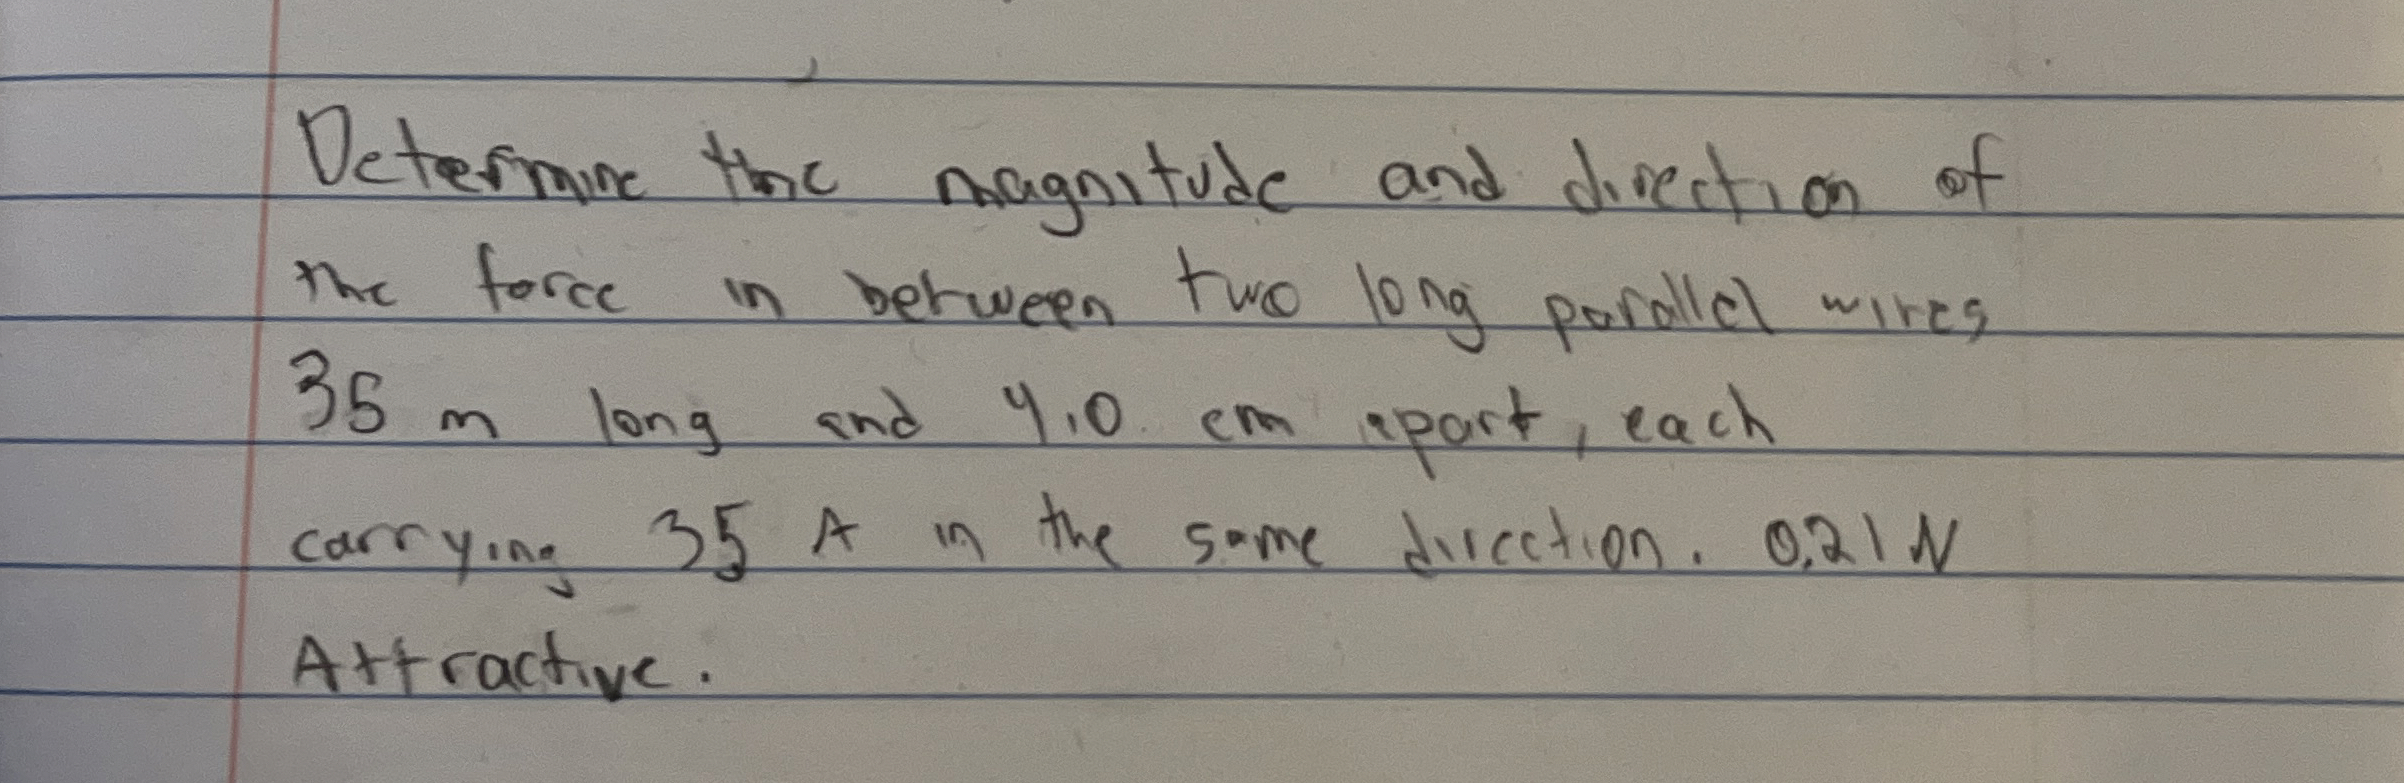 Determine the magnitude and direction of
the force in between two long parallel wires
35 m long and 4.0 cm apart, each
carrying 35 A in the same direction. 0.21 N
Attractive.